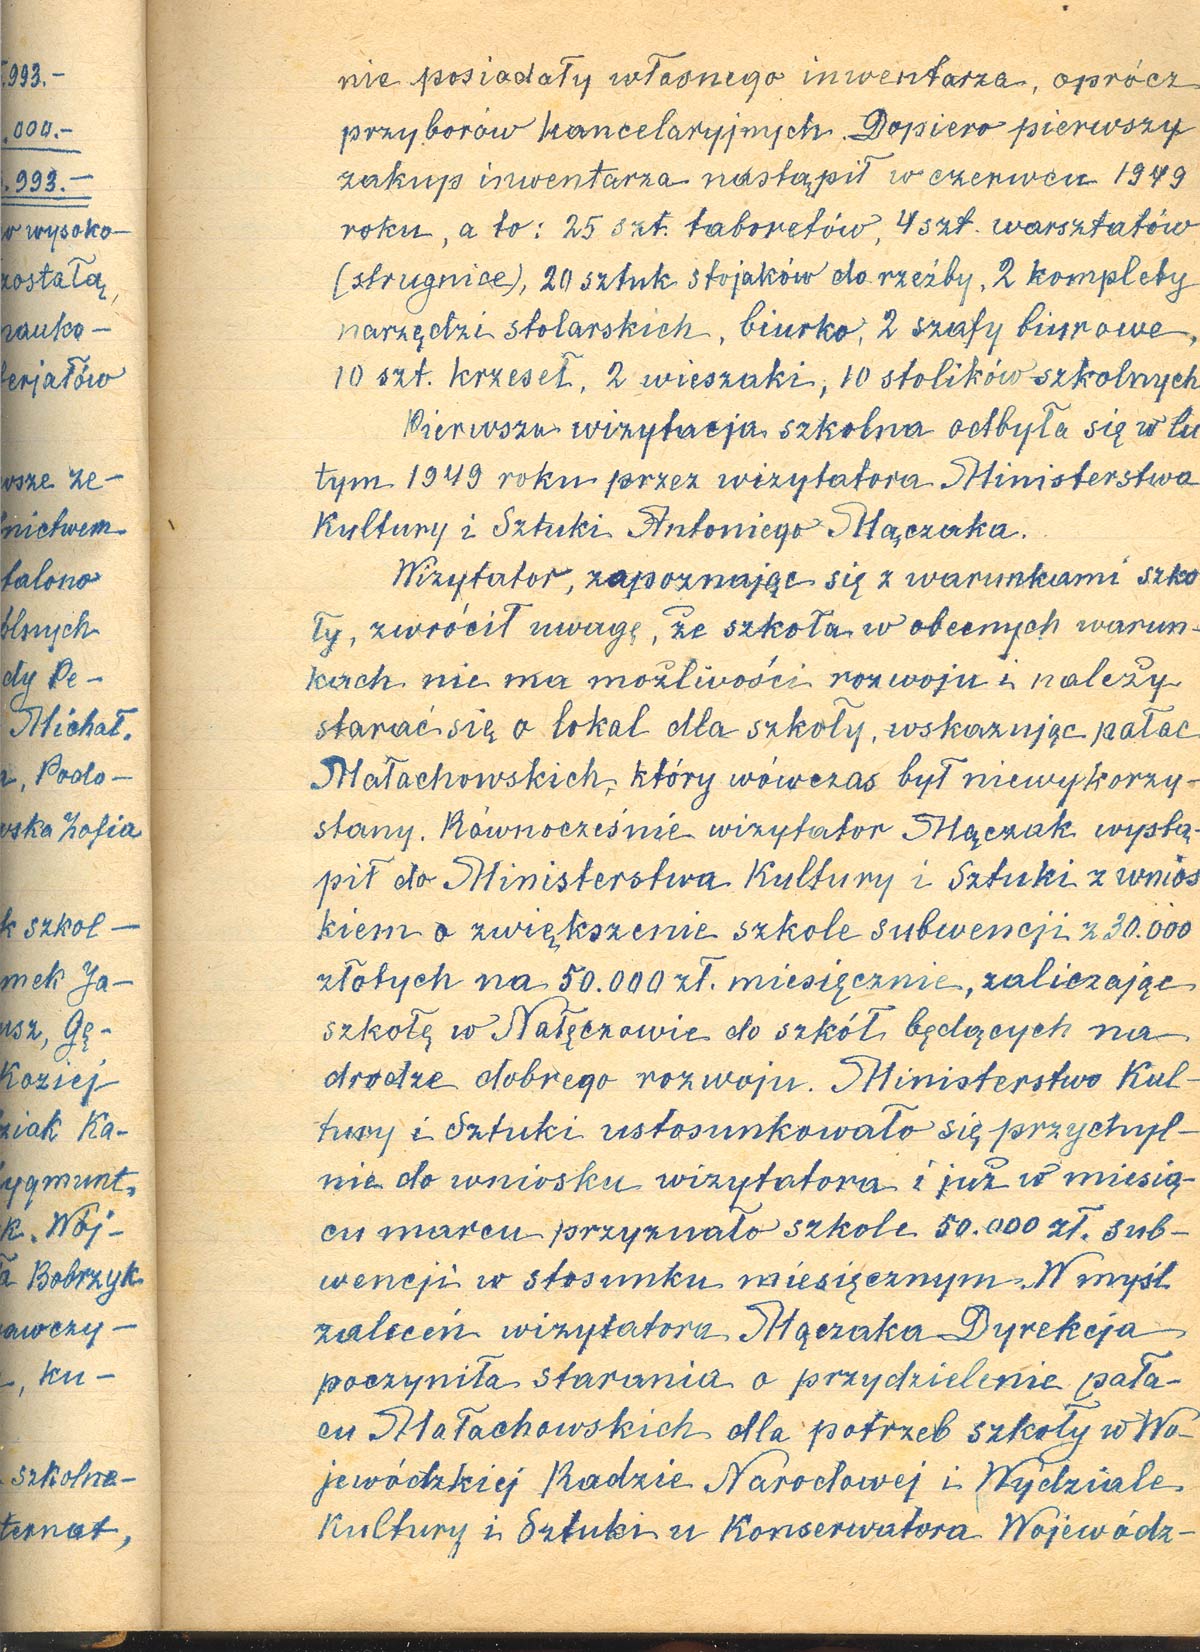 .993.-
.000.-
.993.-
wysoko-
została,
nauko-
terjałów
wsze ze-
nictwem
talono
olnych
dy Pe-
Michał.
, Podo-
wska Zofia
k szkol-
mek Ja-
usz, Gę-
Koziej
ziak Ka-
ygmunt,
k. Wój-
ła Bobrzyk
awczy-
, ku-
szkolne-
ternat,
nie posiadały własnego inwentarza, oprócz
przyborów kancelaryjnych. Dopiero pierwszy
zakup inwentarza nastąpił w czerwcu 1949
roku, a to: 25 szt. taboretów, 4 szt. warsztatów
(strugnice), 20 sztuk stojaków do rzeźby, 2 komplety
narzędzi stolarskich, biurko, 2 szafy biurowe,
10 szt. krzeseł, 2 wieszaki, 10 stolików szkolnych
Pierwsza wizytacja szkolna odbyła się w lu
tym 1949 roku przez wizytatora Ministerstwa
Kultury i Sztuki Antoniego Mączaka.
Wizytator, zapoznając się z warunkami szko
ły, zwrócił uwagę, że szkoła w obecnych warun-
kach nie ma możliwości rozwoju i należy
starać się o lokal dla szkoły, wskazując pałac
Małachowskich, który wówczas był niewykorzy-
stany. Równocześnie wizytator Mączak wystą-
pił do Ministerstwa Kultury i Sztuki z wnios
kiem o zwiększenie szkole subwencji z 30.000
złotych na 50.000 zł. miesięcznie, zaliczając
szkołę w Nałęczowie do szkół będących na
drodze dobrego rozwoju. Ministerstwo Kul-
tury i Sztuki ustosunkowało się przychyl-
nie do wniosku wizytatora i już w miesią-
cu marcu przyznało szkole 50.000 zł. sub-
wencji w stosunku miesięcznym. W myśl
zaleceń wizytatora Mączaka Dyrekcja
poczyniła starania o przydzielenie pała-
cu Małachowskich dla potrzeb szkoły w Wo-
jewódzkiej Radzie Narodowej i Wydziale
Kultury i Sztuki u Konserwatora Wojewódz-